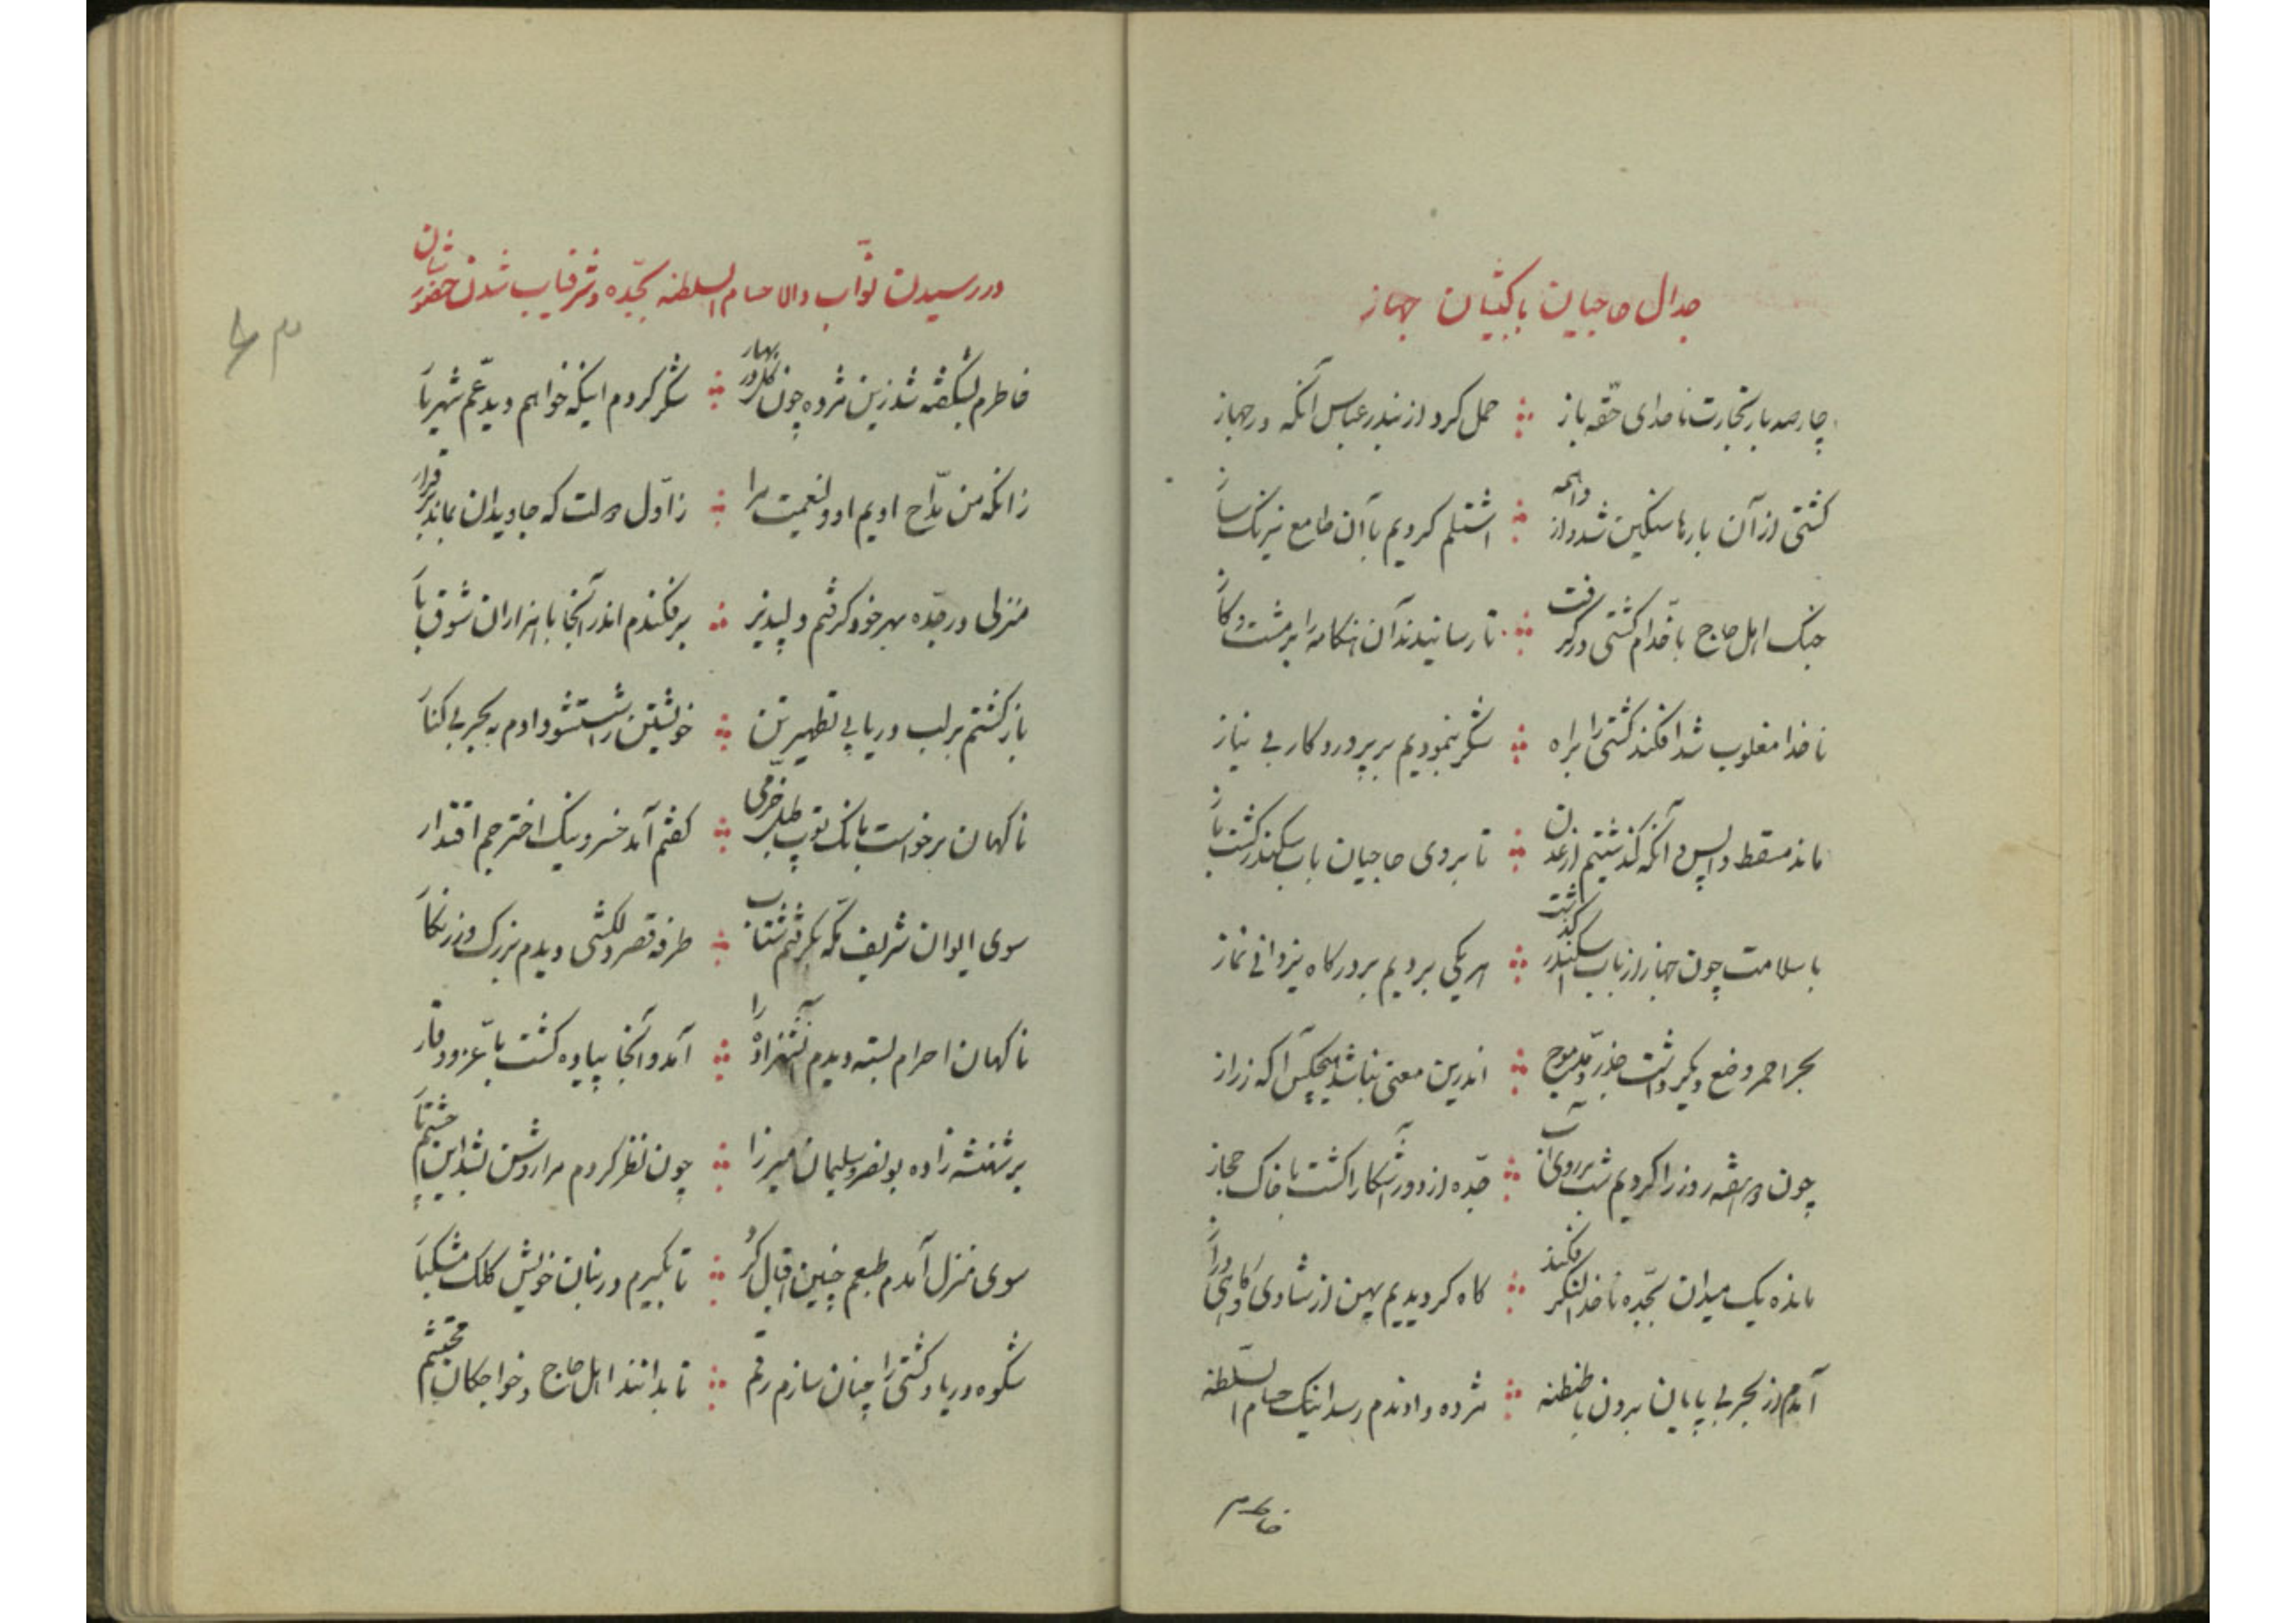 جدال حاجیان با کپتان جهاز
چارصد بار تجارت ناخدای حقه باز حمل کرد از بندر عباس آنکه در جهاز
کشتی از آن بارها سنگین شد و از واهمه اشتلم کردیم با آن طامع نیرنک ساز
جنک اهل حاج با خدام کشتی در گرفت تا رسانیدند آن هنکامه را بر مشت و کاز
ناخدا مغلوب شد افکند کشتی را براه شکر بنمودیم بر پروردکار بی نیاز
ماند مسقط واپس و آنکه کذشتیم از عدن تا بروی حاجیان باب سکندر کشت باز
با سلامت چون جهاز از باب اسکندر کذشت هر یکی بردیم بر درکاه یزدانی نماز
بحر احمر وضع دیکر داشت جذر و مد موج اندرین معنی نباشد هیچکس آکه ز راز
چون دو هفته روز را کردیم شب بر روی آب جده از دور آشکارا کشت با خاک حجاز
مانده یک میدان بجده ناخدا لنکر فکند کاه کردیدیم پهن از شادی و کاهی دراز
آمدم از بحر بی پایان برون با طنطنه مژده دادندم رسد اینک حسام السلطنه
خاطرم
در رسیدن نواب والا حسام السلطنه بجده و شرفیاب شدن حضورشان
خاطرم بشکفته شد زین مژده چون کل در بهار شکر کردم اینکه خواهم دید عم شهریار
زانکه من مداح اویم او ولنعمت مرا ز اول دولت که جاویدان بماند برقرار
منزلی در جده بهر خود کرفتم دلپذیر برفکندم اندر آنجا با هزاران شوق بار
بازکشتم بر لب دریا پی تطهیر تن خویشتن را شستشو دادم به بحر بی کنار
ناکهان برخواست بانک توپ طبل خرمی کفتم آمد خسرو نیک اختر جم اقتدار
سوی ایوان شریف مکه بکرفتم شتاب طرفه قصر دلکشی دیدم بزرک و زرنکار
ناکهان احرام بسته دیدم آنشهزاده را آمد و آنجا پیاده کشت با عز و وقار
بر شهنشه زاده بونصر و سلیمان میرزا چون نظر کردم مرا روشن بشد این چشم تار
سوی منزل آمدم طبعم چنین اقبال کرد تا بکیرم در بنان خویش کلک مشکبار
شکوه دریا و کشتی را چنان سازم رقم تا بدانند اهل حاج و خواجکان محتشم